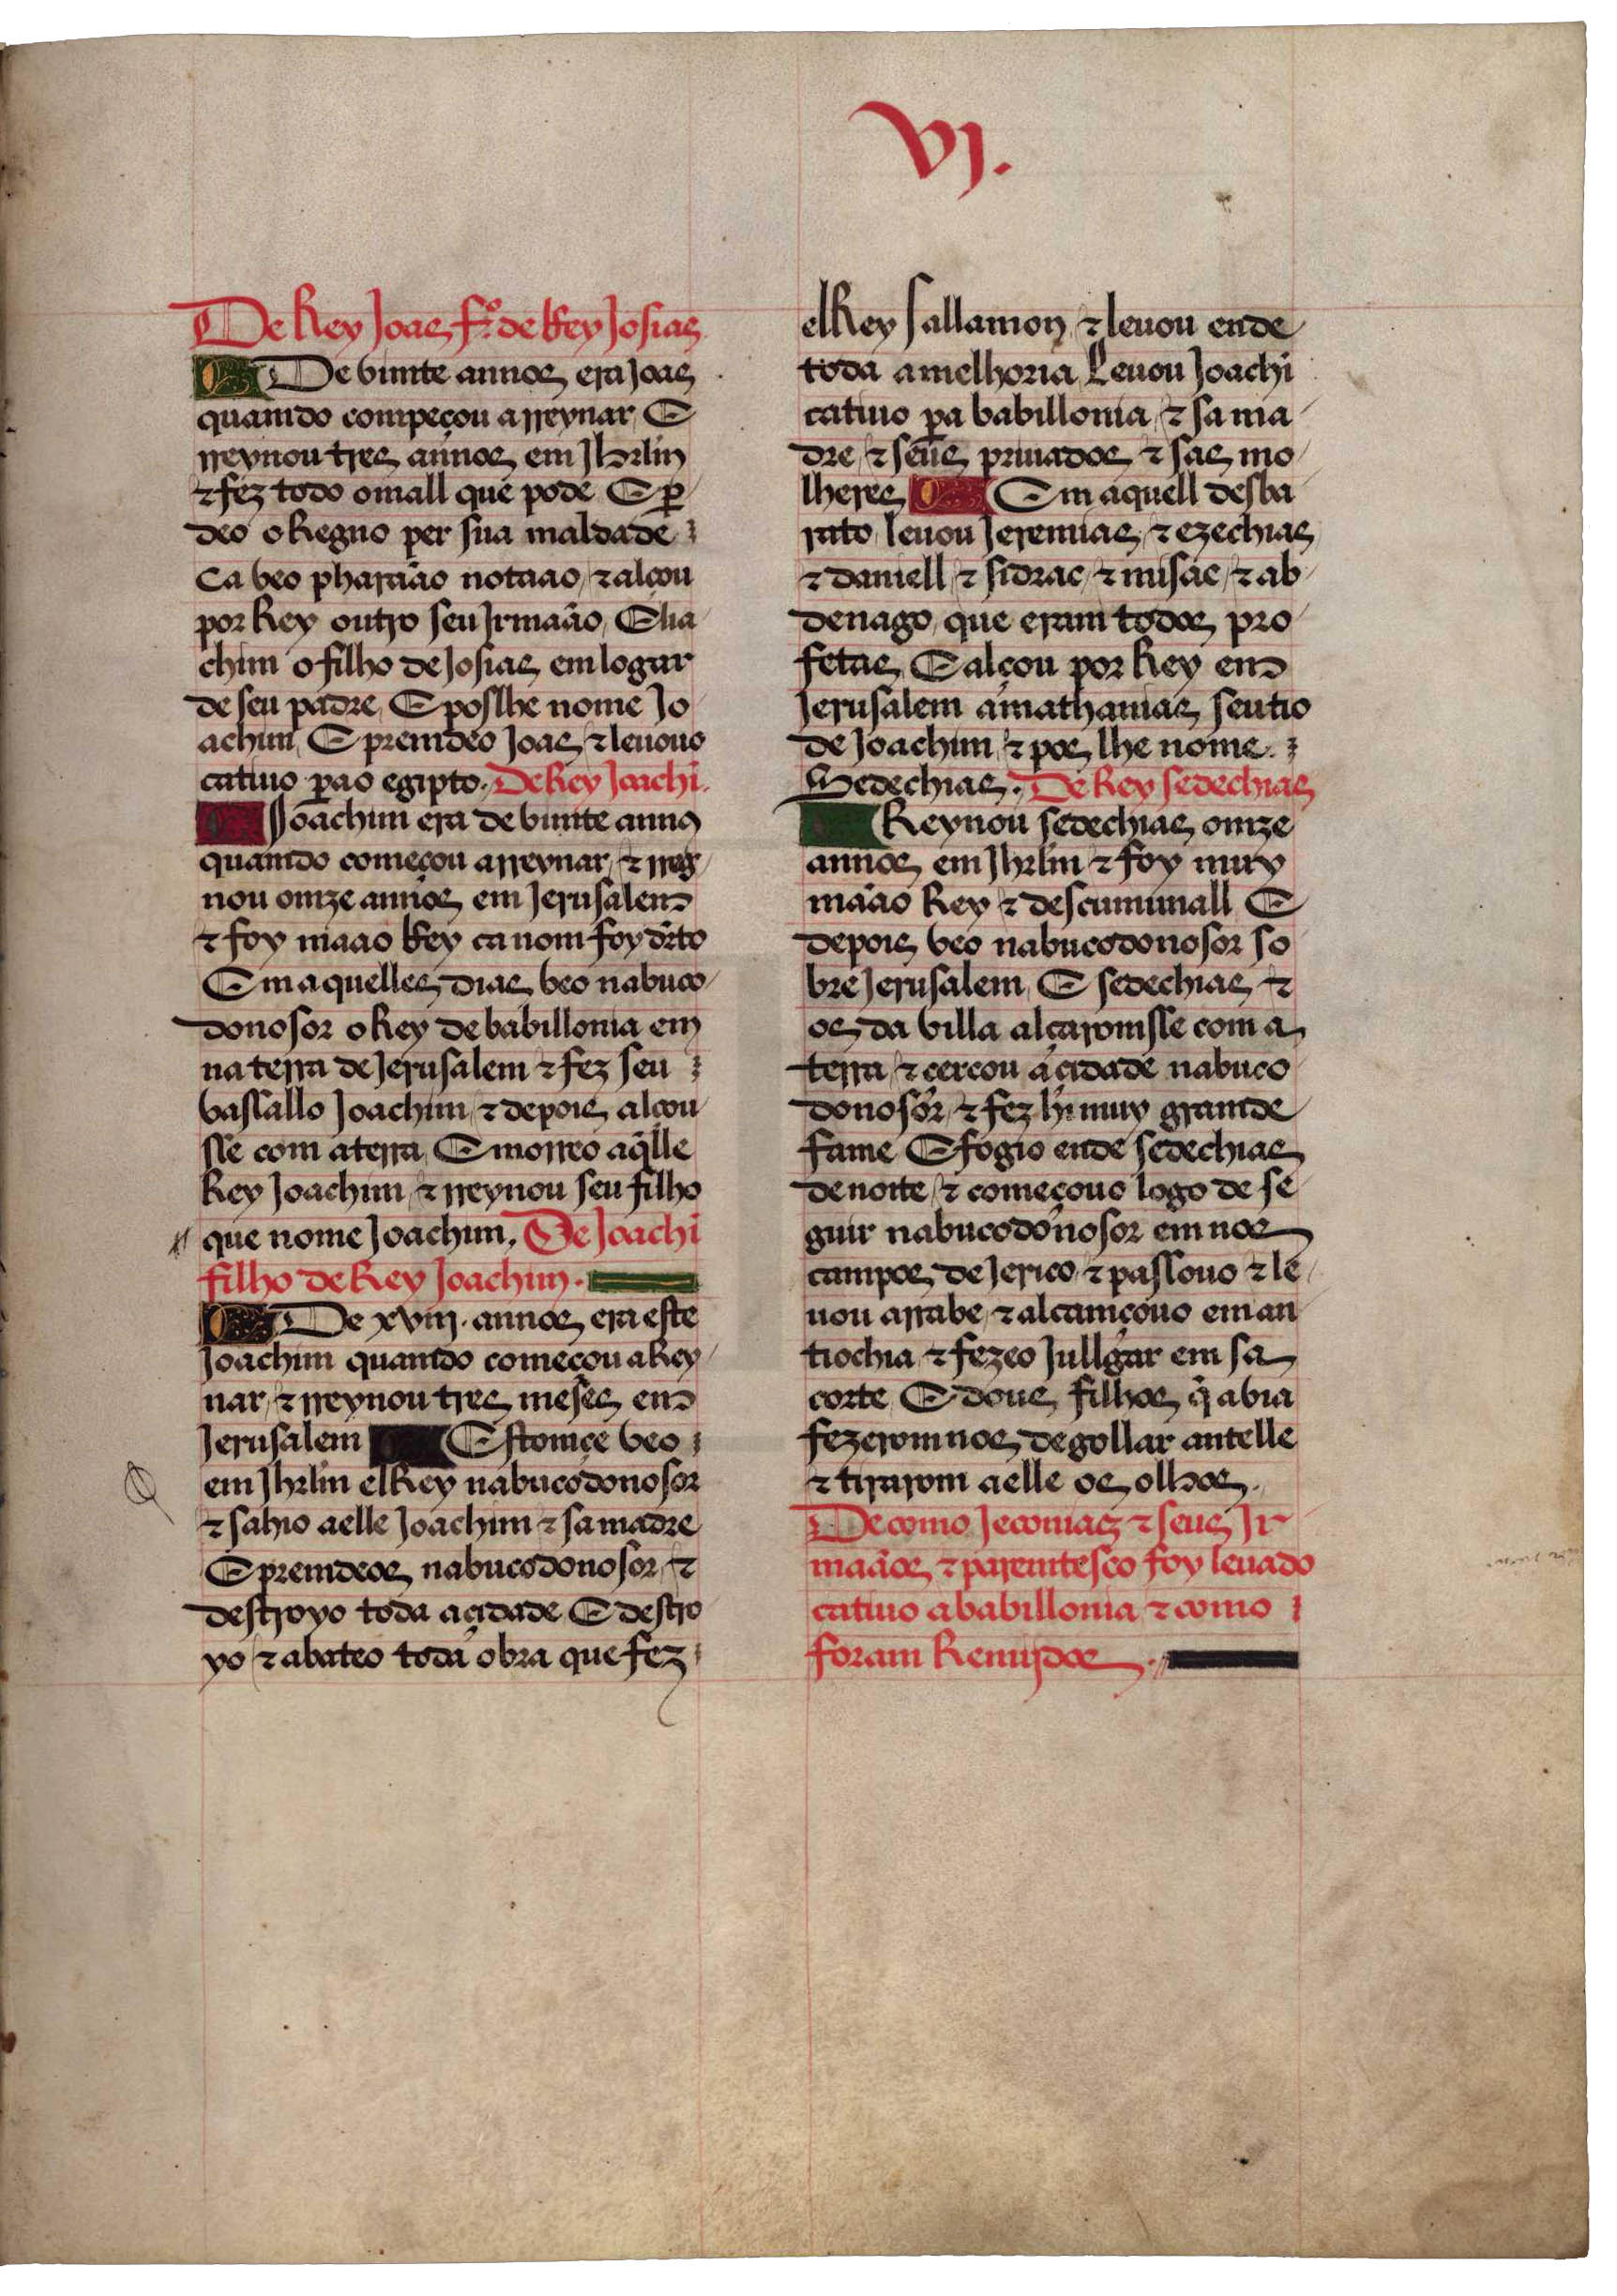 VJ.
De Rey Joas f.º de Rey Josias
De vimte annos era Joas
quamdo compeçou a rreynar E
rreynou tres annos em Jhrlm
⁊ fez todo o mall que pode E per
deo o Regno per sua maldade
Ca veo pharaão notaao ⁊ alçou
por Rey outro seu Jrmaão Elia
chim o filho de Josias em logar
de seu padre E poslhe nome Jo
achim E premdeo Joas ⁊ leuouo
catiuo pao egipto. De Rey Joachi.
Joachim era de vimte annos
quamdo começou a rreynar ⁊ rreg
nou omze annos em Jerusalem
⁊ foy maao Rey ca nom foy drto
Em aquelles dias veo nabuco
donosor o Rey de babillonia em
na terra de Jerusalem ⁊ fez seu
vassallo Joachim ⁊ depois alçou
sse com a terra E morreo aqlle
Rey Joachim ⁊ rreynou seu filho
que nome Joachim. De Joachi
filho de Rey Joachim.
De xviij. annos era este
Joachim quamdo começou a Rey
nar ⁊ rreynou tres meses em
Jerusalem Estomçe veo
em Jhrlm elRey nabucodonosor
⁊ sahio a elle Joachim ⁊ sa madre
E premdeos nabucodonosor ⁊
destroyo toda a çidade E destro
yo ⁊ abateo toda obra que fez
elRey sallamon ⁊ leuou ende
toda a melhoria Leuou Joachi
catiuo pa babillonia ⁊ sa ma
dre ⁊ seus priuados ⁊ sas mo
lheres Em aquell desba
rato leuou Jeremias ⁊ ezechias
⁊ daniell ⁊ sidrac ⁊ misac ⁊ ab
denago que eram todos pro
fetas E alçou por Rey em
Jerusalem a mathanias seu tio
de Joachim ⁊ pos lhe nome
Sedechias. De Rey sedechias
Reynou sedechias omze
annos em Jhrlm ⁊ foy muy
maão Rey ⁊ descumunall E
depois veo nabucodonosor so
bre Jerusalem E sedechias ⁊
os da villa alçaromsse com a
terra ⁊ çercou a çidade nabuco
donosor ⁊ fez hi muy gramde
fame E fogio ende sedechias
de noite ⁊ começouo logo de se
guir nabucodonosor em nos
campos de Jerico ⁊ passouo ⁊ le
uou arrabe ⁊ alcamçouo em an
tiochia ⁊ fezeo Jullgar em sa
corte E dous filhos q̃ avia
fezeromnos degollar antelle
⁊ tirarom a elle os olhos.
De como Jeconias ⁊ seus Jr
maãos ⁊ paremtesco foy leuado
catiuo a babillonia ⁊ como
foram Remijdos.